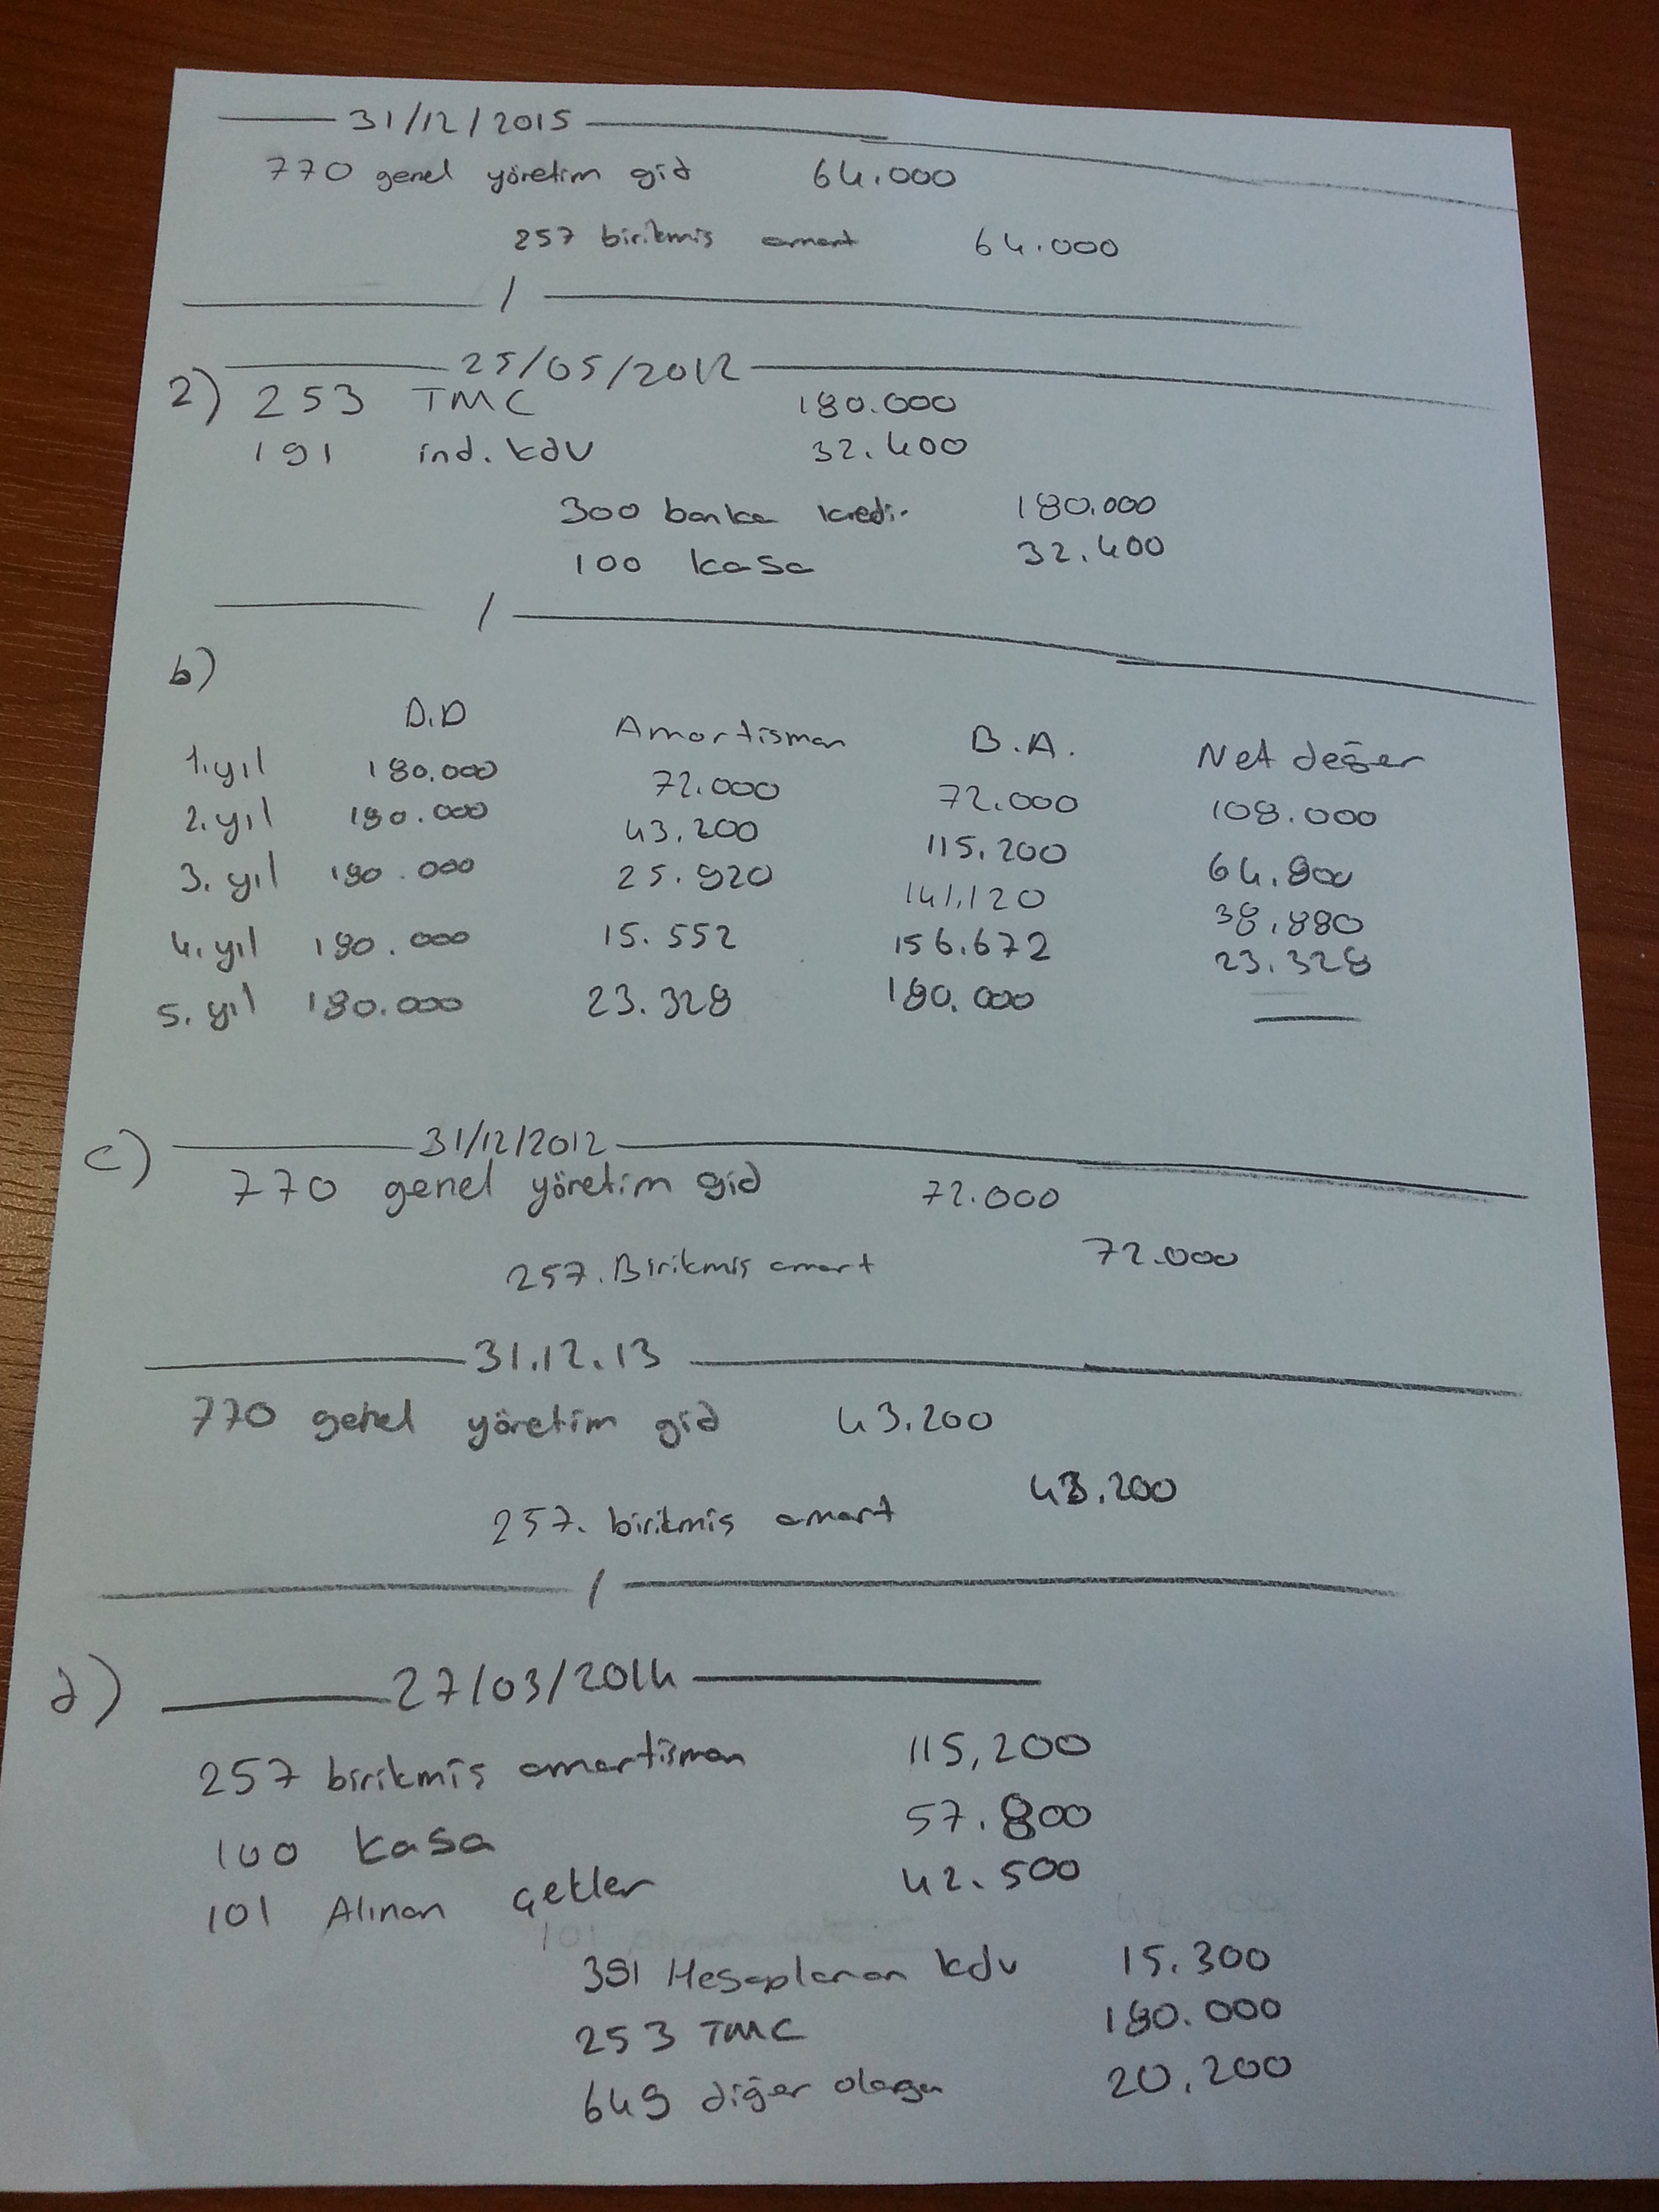 31/12/2015
770 genel yönetim gid 64.000
257 birikmiş amort 64.000
/
25/05/2012
2) 253 TMC 180.000
191 ind. kdv 32.400
300 banka kredi. 180.000
100 kasa 32.400
/
b)
D.D Amortisman B.A. Net değer
1.yıl 180.000 72.000 72.000 108.000
2.yıl 180.000 43.200 115.200 64.800
3. yıl 180.000 25.920 141.120 38.880
4. yıl 180.000 15.552 156.672 23.328
5. yıl 180.000 23.328 180.000 —
c) 31/12/2012
770 genel yönetim gid 72.000
257. Birikmiş amort 72.000
31.12.13
770 genel yönetim gid 43.200
257. birikmiş amort 43.200
/
d) 27/03/2014
257 birikmiş amortisman 115,200
100 kasa 57.800
101 Alınan çekler 42.500
391 Hesaplanan kdv 15.300
253 TMC 180.000
649 diğer olağan 20,200